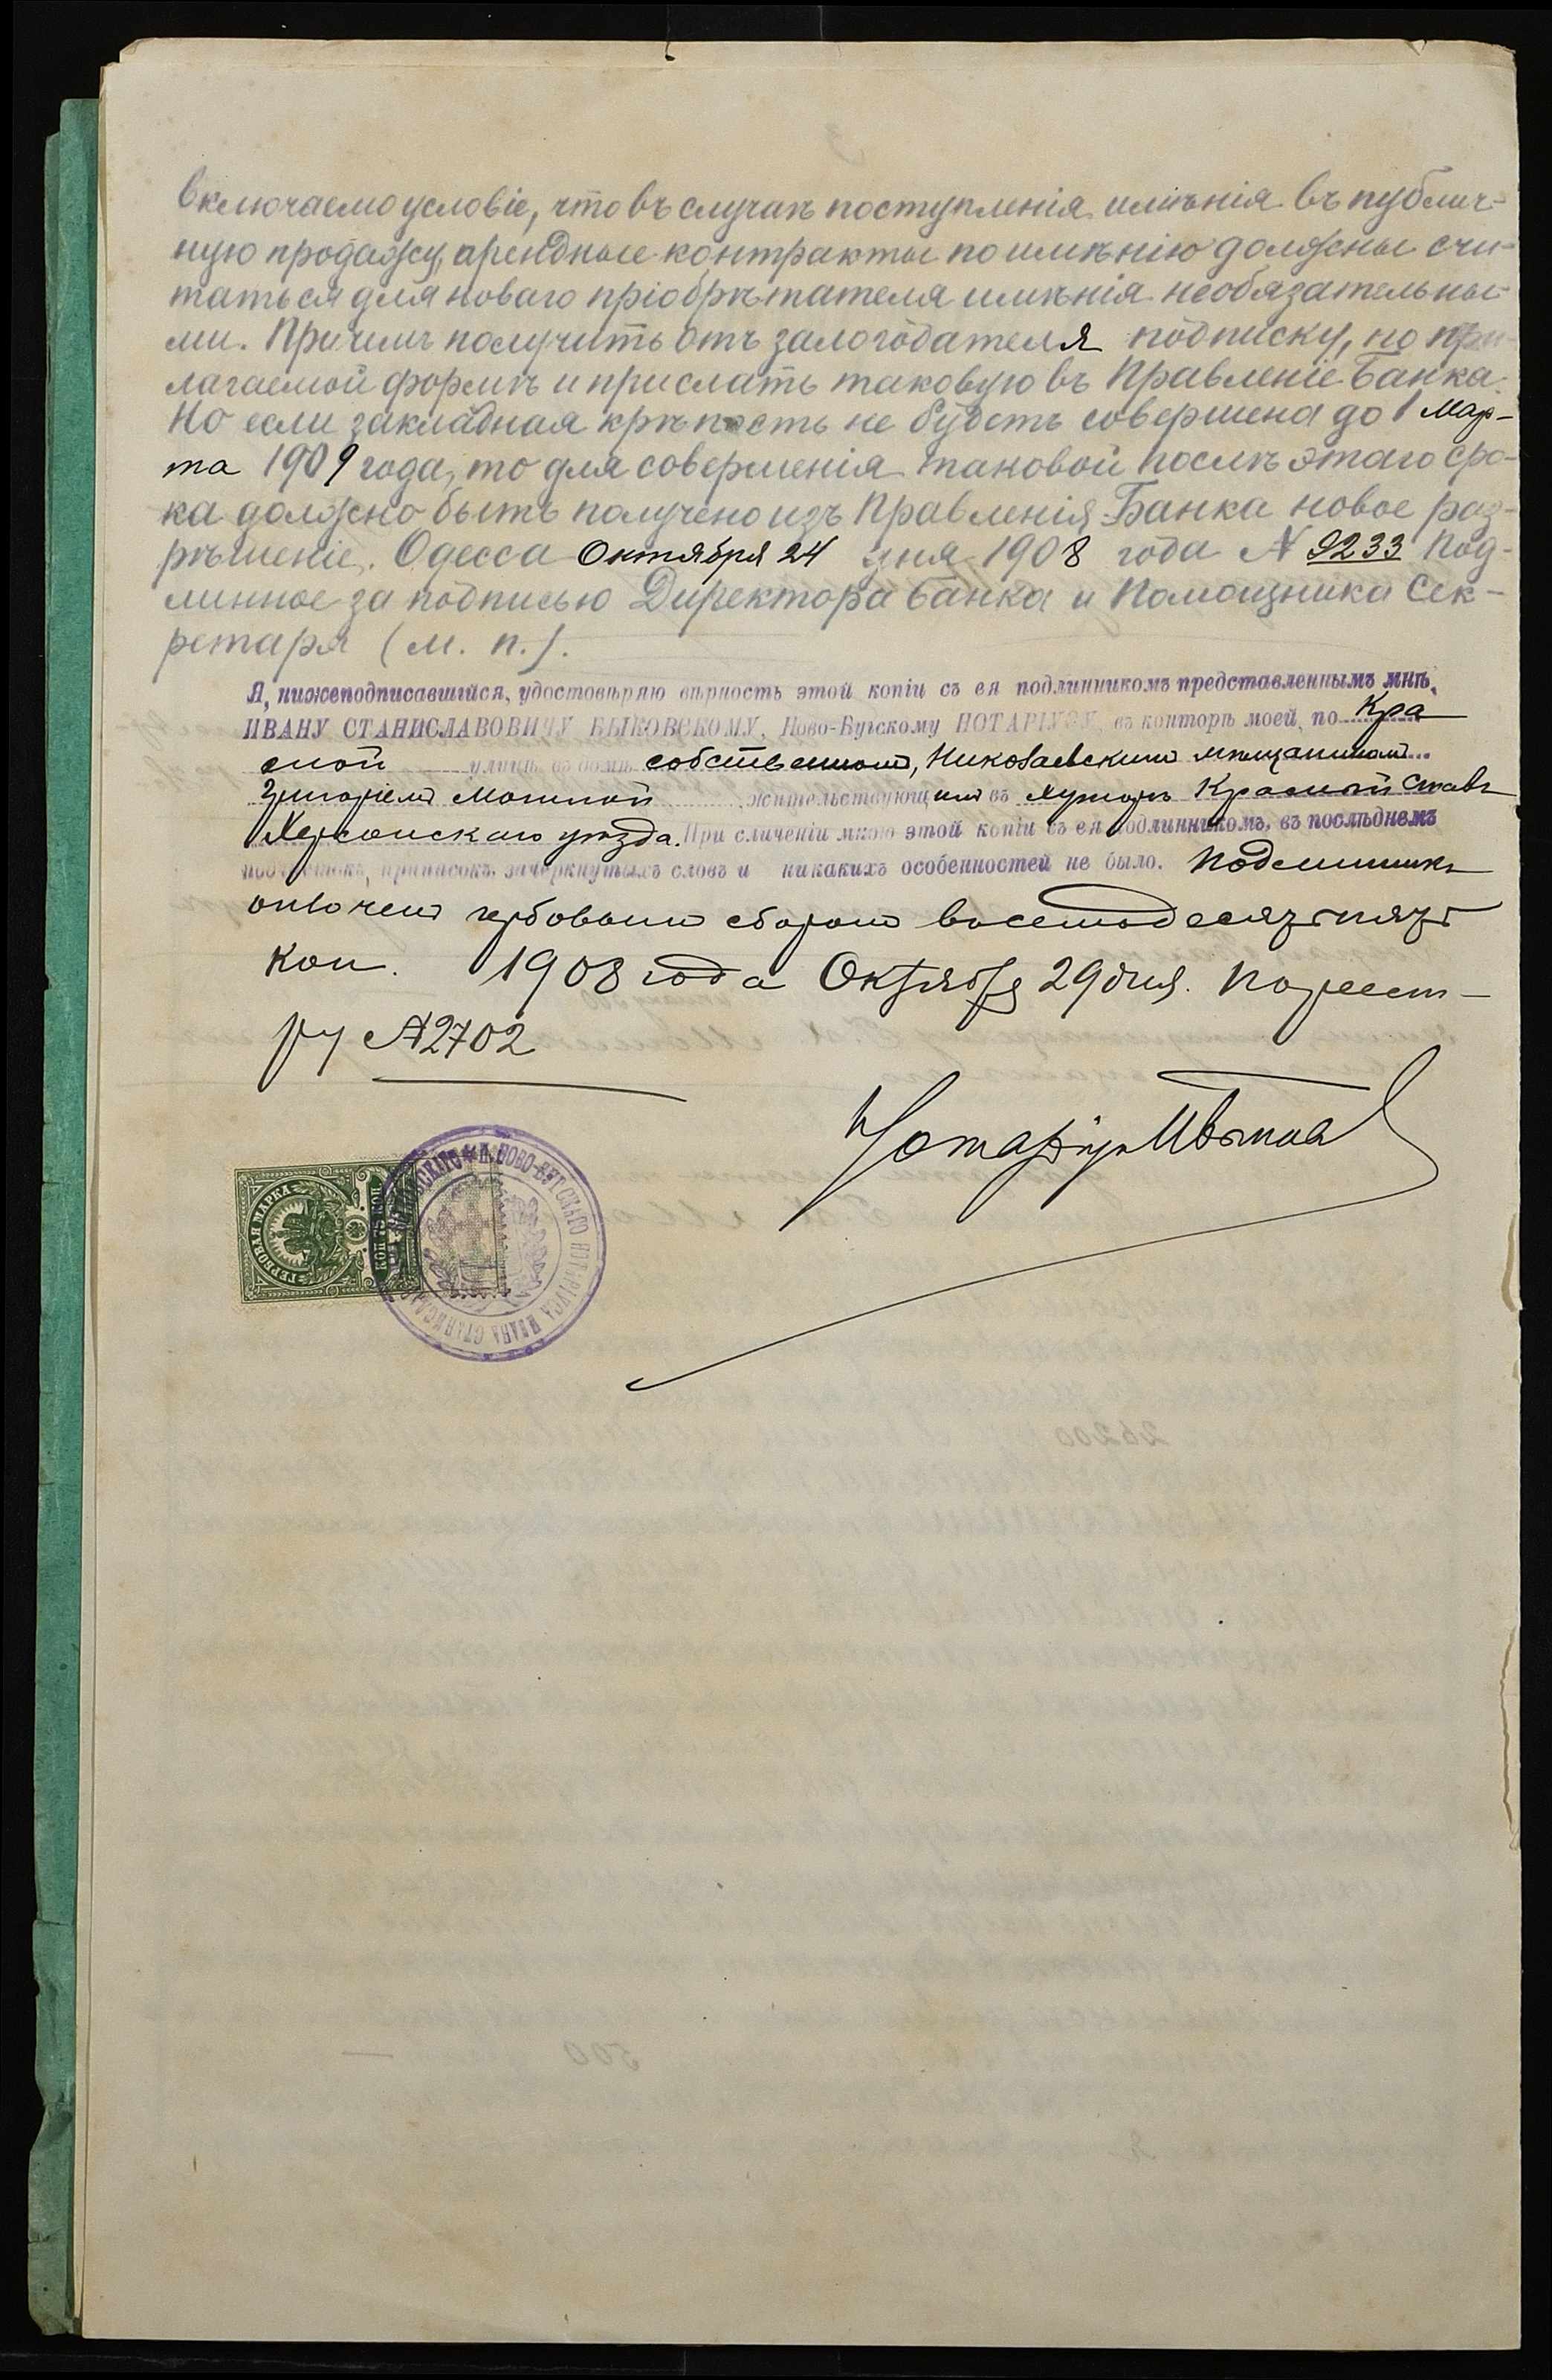 включаемо условіе, что въ случаѣ поступленія имѣнія въ публич-
ную продажу, арендные контракты по имѣнію должны счи-
таться для новаго пріобрѣтателя имѣнія необязательны-
ми. При чемъ получить отъ залогодателя подписку, по при-
лагаемой формѣ и прислать таковую въ Правленіе Банка.
Но если закладная крѣпость не будетъ совершена до 1 Мар-
та 1909 года, то для совершенія таковой послѣ этого сро-
ка должно быть получено изъ Правленія Банка новое раз-
рѣшеніе. Одесса Октября 24 дня 1908 года № 9233 Под-
линное за подписью Директора Банка и Помощника Сек-
ретаря (м. п.).
Я, нижеподписавшійся, удостовѣряю вѣрность этой копіи съ ея подлинникомъ представленнымъ мнѣ,
ИВАНУ СТАНИСЛАВОВИЧУ БЫКОВСКОМУ, Ново-Бугскому НОТАРІУСУ, въ конторѣ моей, по Кра
сной улицѣ въ домѣ собственномъ, Николаевскимъ мѣщаниномъ
Григоріемъ жительствующимъ въ хуторѣ Красный Ставъ
Херсонскаго уѣзда. При сличеніи мною этой копіи съ ея подлинникомъ, въ послѣднемъ
подчистокъ, приписокъ, зачеркнутыхъ словъ и никакихъ особенностей не было. Подлинникъ
оплоченъ гербовымъ сборомъ восемьдесятъ пять
коп. 1908 года Октября 29 дня. По реест-
ру № 2702
Нотаріусъ
ГЕРБОВАЯ МАРКА
75 КОП
НОВО-БУГСКАГО НОТАРІУСА ИВАНА СТАНИСЛАВ